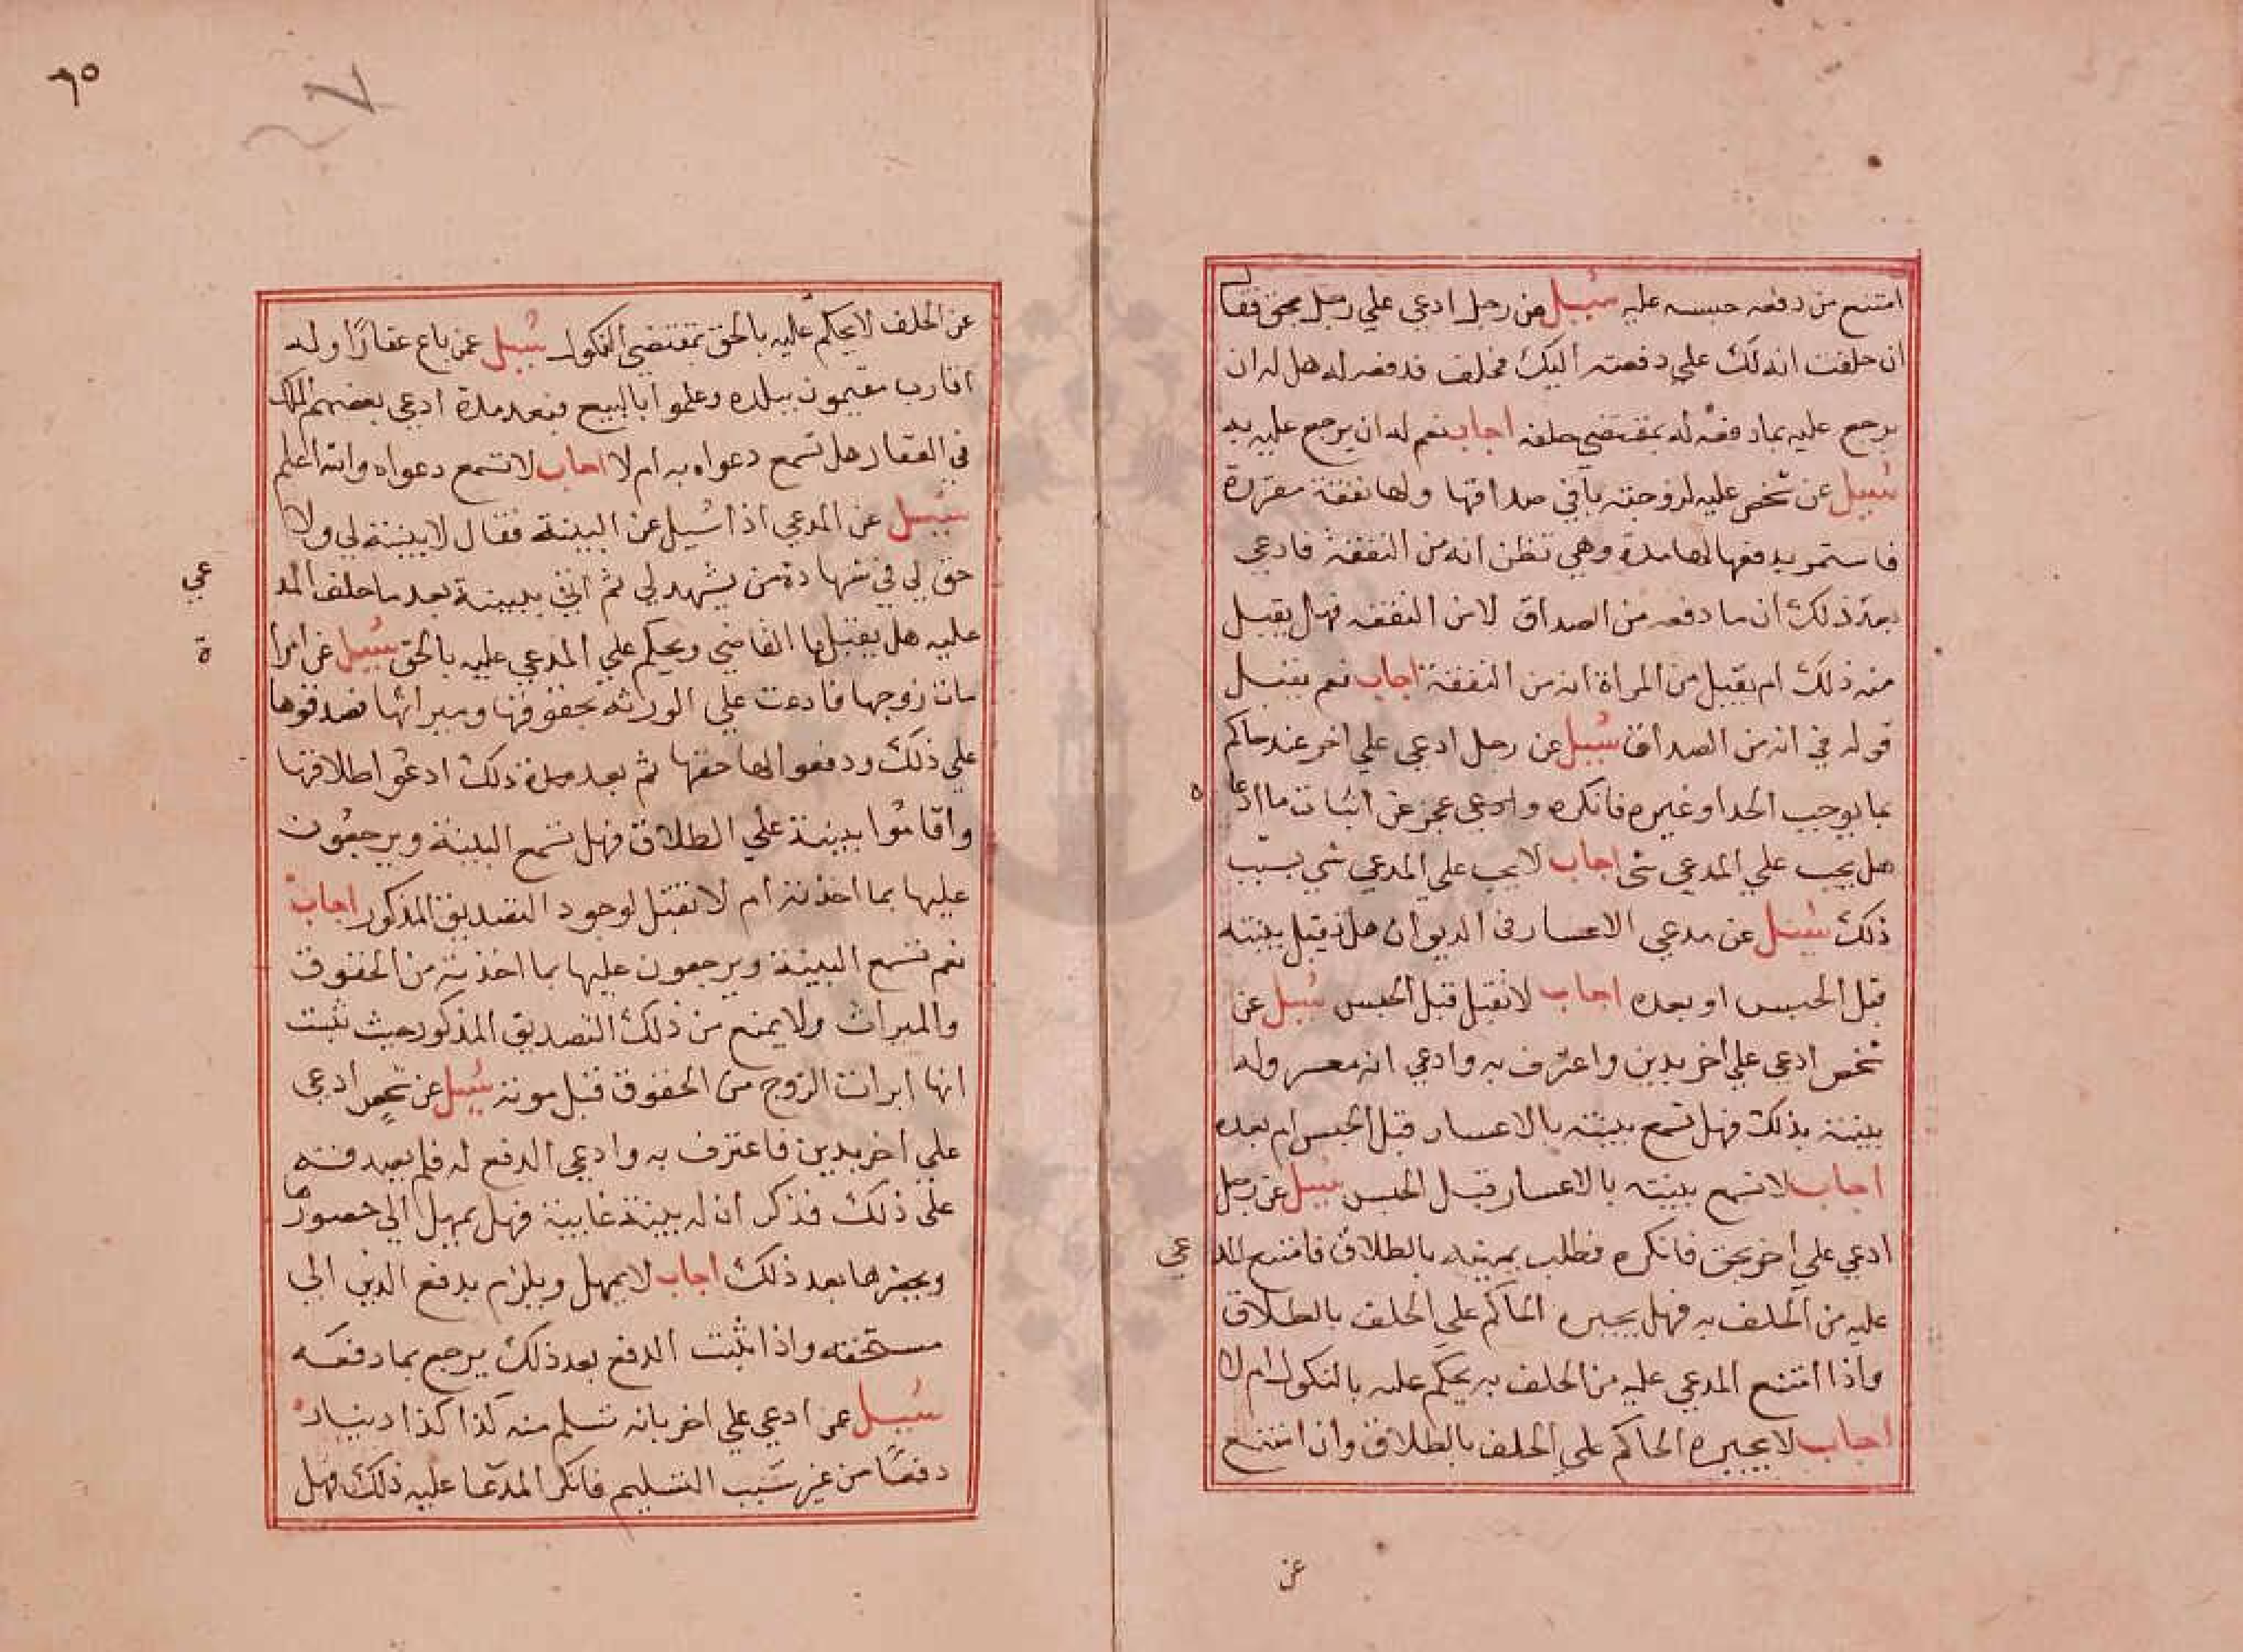 امتنع من دفعه حبسه عليه سئيل عن رجل ادعي علي رجل بحق فقال
ان حلفت انه لك علي دفعته اليك فحلف فدفعه له هل له ان
يرجع عليه بما دفعه له بمقتضي حلفه اجاب نعم له ان يرجع عليه به
سئيل عن شخص عليه لزوجته باقي صداقها ولها نفقة مقررة
فاستمر يدفعها لها مدة وهي تظن انه من النفقة فادعي
بعد ذلك ان ما دفعه من الصداق لا من النفقه فهل يقبل
منه ذلك ام يقبل من المراة انه من النفقة اجاب نعم يقبل
قوله في انه من الصداق سئيل عن رجل ادعي علي اخر عند حاكم
بما يوجب الحد او غيره فانكره وادعي عجز عن اثبات ما ادعاه
هل يجب علي المدعي شي اجاب لا يجب علي المدعي شي بسبب
ذلك سئيل عن مدعي الاعسار في الديوان هل تقبل بينته
قبل الحبس او بعده اجاب لا تقبل قبل الحبس سئيل عن
شخص ادعي علي اخر بدين واعترف به وادعي انه معسر وله
بينة بذلك فهل تسمع بينته بالاعسار قبل الحبس ام بعده
اجاب لا تسمع بينته بالاعسار قبل الحبس سئيل عن رجل
ادعي علي اخر بحق فانكره فطلب يمينه بالطلاق فامتنع المدعي
عليه من الحلف به فهل يجبره الحاكم علي الحلف بالطلاق
واذا امتنع المدعي عليه من الحلف به يحكم عليه بالنكول ام لا
اجاب لا يجبره الحاكم علي الحلف بالطلاق وان امتنع
عن
٦٥
عن الحلف لا يحكم عليه بالحق بمقتضي النكول سئيل عمن باع عقارًا وله
اقارب مقيمون ببلده وعلموا بالبيع فبعد مدة ادعي بعضهم الملك
في العقار هل تسمع دعواه به ام لا اجاب لا تسمع دعواه والله اعلم
سئيل عن المدعي اذا سئيل عن البينة فقال لا بينة لي ولا
حق لي في شهادة من يشهد لي ثم اتي ببينة بعد ما حلف المدعي
عليه هل يقبلها القاضي ويحكم علي المدعي عليه بالحق سئيل عن امراة
مات زوجها فادعت علي الورثه بحقوقها وميراثها فصدقوها
علي ذلك ودفعوا لها حقها ثم بعد مدة ذلك ادعوا طلاقها
واقاموا بينة علي الطلاق فهل تسمع البينة ويرجعون
عليها بما اخذته ام لا تقبل لوجود التصديق المذكور اجاب
نعم تسمع البينة ويرجعون عليها بما اخذته من الحقوق
والميراث ولا يمنع من ذلك التصديق المذكور حيث ثبت
انها ابرات الزوج من الحقوق قبل موته سئيل عن شخص ادعي
علي اخر بدين فاعترف به وادعي الدفع له فلم يصدقه
علي ذلك فذكر ان له بينة غايبة فهل يمهل الي حضورها
ويجبرها بعد ذلك اجاب لا يمهل ويلزم بدفع الدين الي
مستحقه واذا ثبت الدفع بعد ذلك يرجع بما دفعه
سئيل عمن ادعي علي اخر بانه تسلم منه كذا كذا دينار
دفعًا من غير سبب التسليم فانكر المدعا عليه ذلك فهل